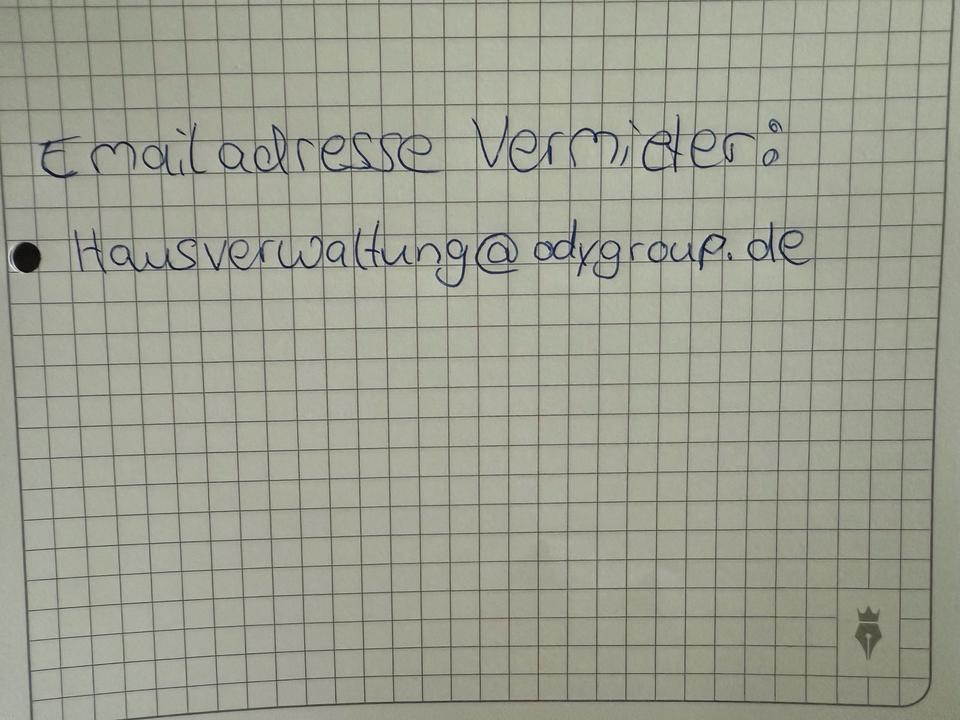 Emailadresse Vermieter:
Hausverwaltung@odygroup.de